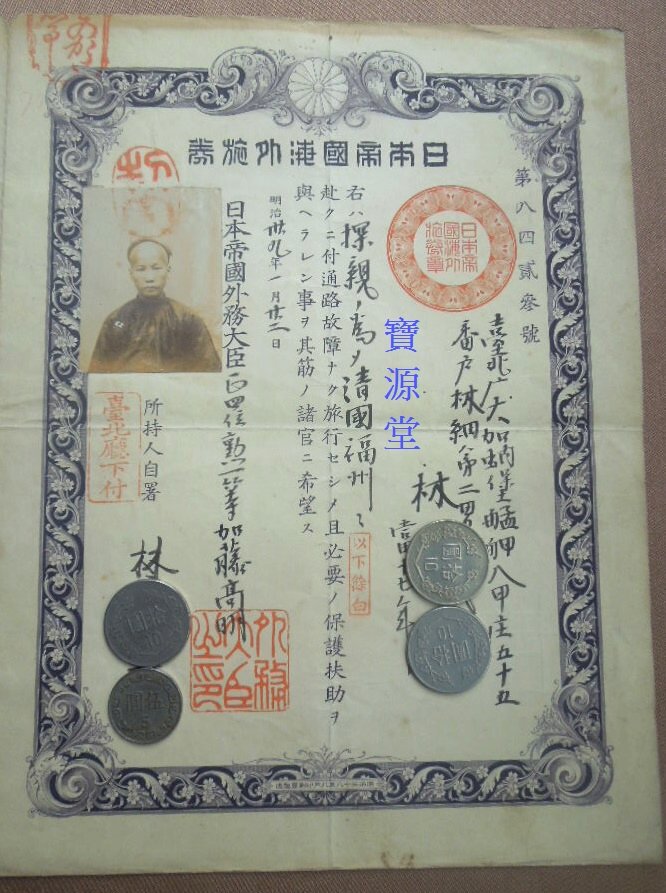 日本帝國海外旅券
第八四貳參號
日本帝國海外旅券章
臺北庁大加蚋堡艋舺八甲庄五十五
番戸林細弟二男
林
當四十七年
右ハ探親ノ為メ清國福州ニ
以下餘白
赴クニ付通路故障ナク旅行セシメ且必要ノ保護扶助ヲ
與ヘラレン事ヲ其筋ノ諸官ニ希望ス
明治卅九年一月廿二日
日本帝國外務大臣正四位勲一等加藤高明
外務大臣之印
所持人自署
林
臺北廳下付
寶源堂